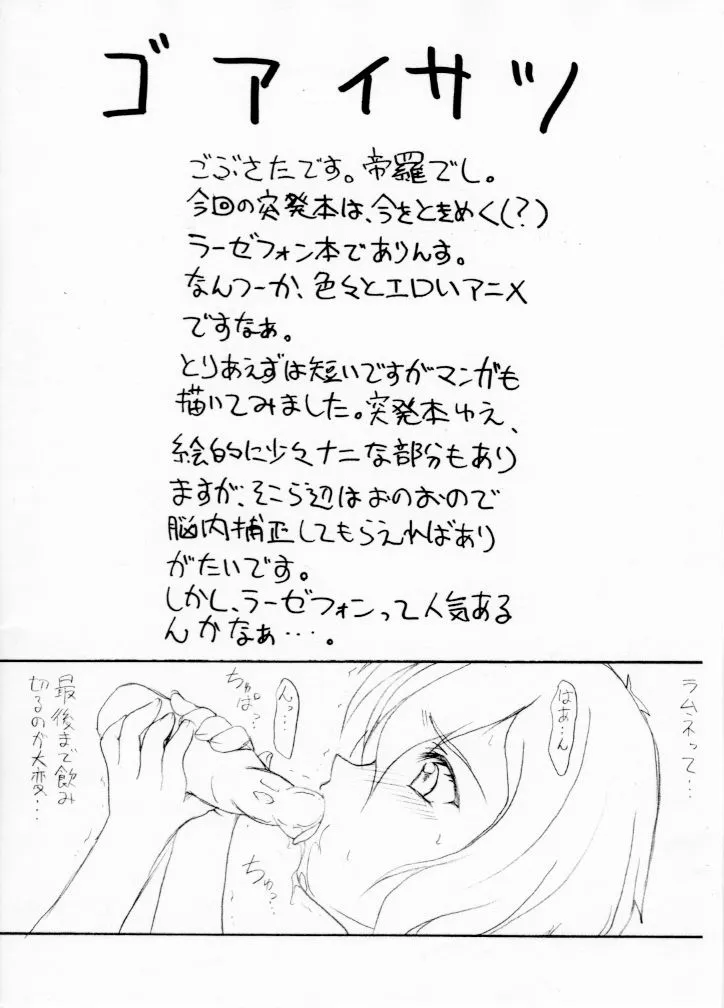 ゴアイサツ
ごぶさたです。帝羅でし。
今回の突発本は、今をときめく(?)
ラーゼフォン本でありんす。
なんつーか、色々とエロいアニメ
ですなぁ。
とりあえずは短いですがマンガも
描いてみました。突発本ゆえ、
絵的に少々ナニな部分もあり
ますが、そこら辺はおのおので
脳内補正してもらえればあり
がたいです。
しかし、ラーゼフォンって人気ある
んかなぁ…。
ラムネって…
はぁ…ん
んっ…
ちゅぱっ
ちゅっ…
最後まで飲み
切るのが大変…